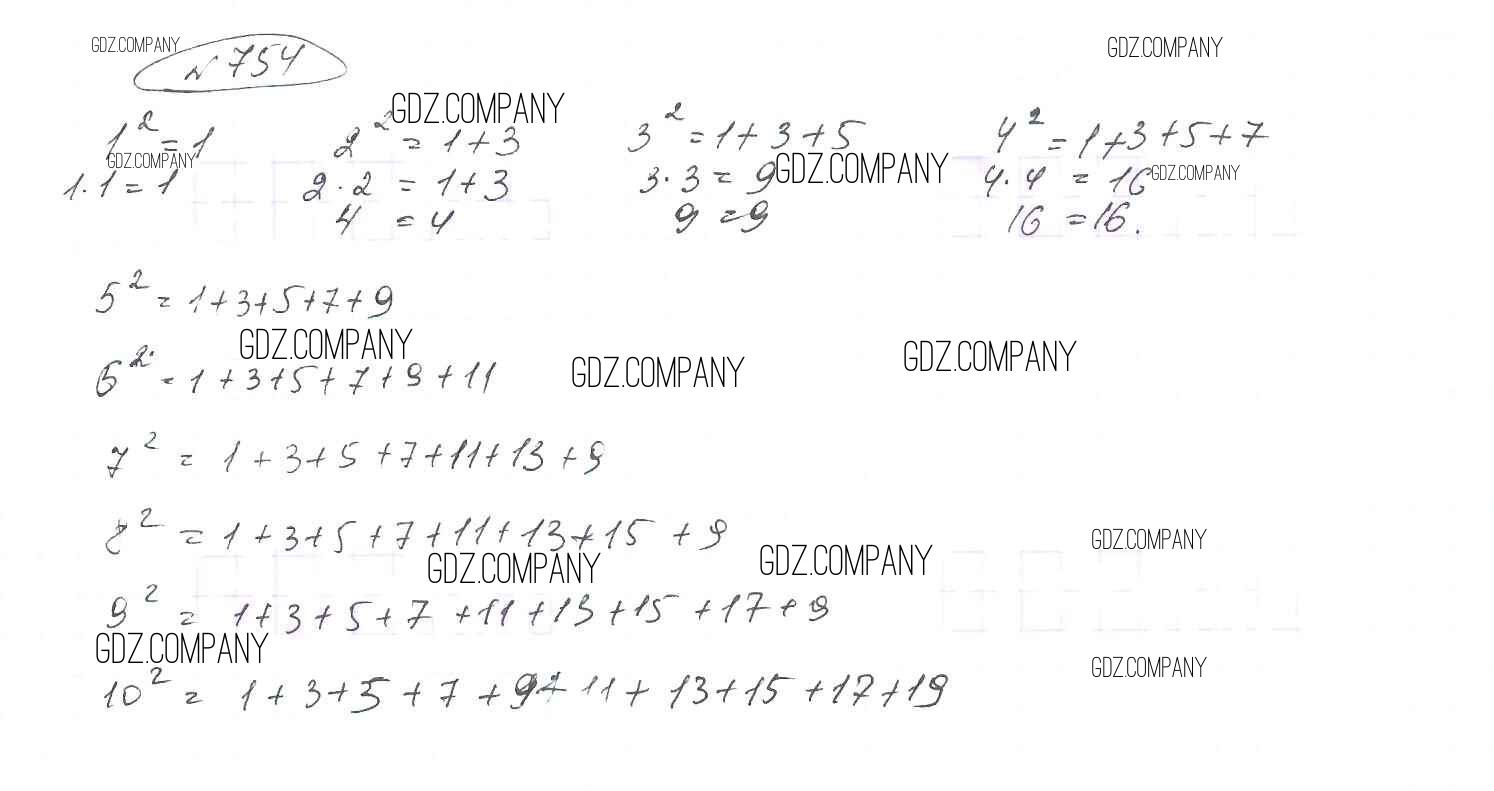 GDZ.COMPANY GDZ.COMPANY
№ 754
GDZ.COMPANY
1² = 1 2² = 1 + 3 3² = 1 + 3 + 5 4² = 1 + 3 + 5 + 7
GDZ.COMPANY GDZ.COMPANY GDZ.COMPANY
1 · 1 = 1 2 · 2 = 1 + 3 3 · 3 = 9 4 · 4 = 16
4 = 4 9 = 9 16 = 16.
5² = 1 + 3 + 5 + 7 + 9
GDZ.COMPANY GDZ.COMPANY GDZ.COMPANY
6² = 1 + 3 + 5 + 7 + 9 + 11
7² = 1 + 3 + 5 + 7 + 11 + 13 + 9
8² = 1 + 3 + 5 + 7 + 11 + 13 + 15 + 9
GDZ.COMPANY
GDZ.COMPANY GDZ.COMPANY
9² = 1 + 3 + 5 + 7 + 11 + 13 + 15 + 17 + 9
GDZ.COMPANY GDZ.COMPANY
10² = 1 + 3 + 5 + 7 + 9 + 11 + 13 + 15 + 17 + 19